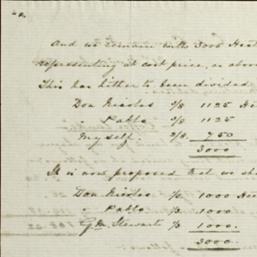 And we remain with 3000
representing at cost price, or
This has hitherto been divided
Don Nicolas 3/8 1125
" Pablo 3/8 1125
Myself 2/8 750
3000
It is now proposed that we
Don Nicolas 1/3 1000
" Pablo 1/3 1000
Stewart 1/3 1000.
3000.